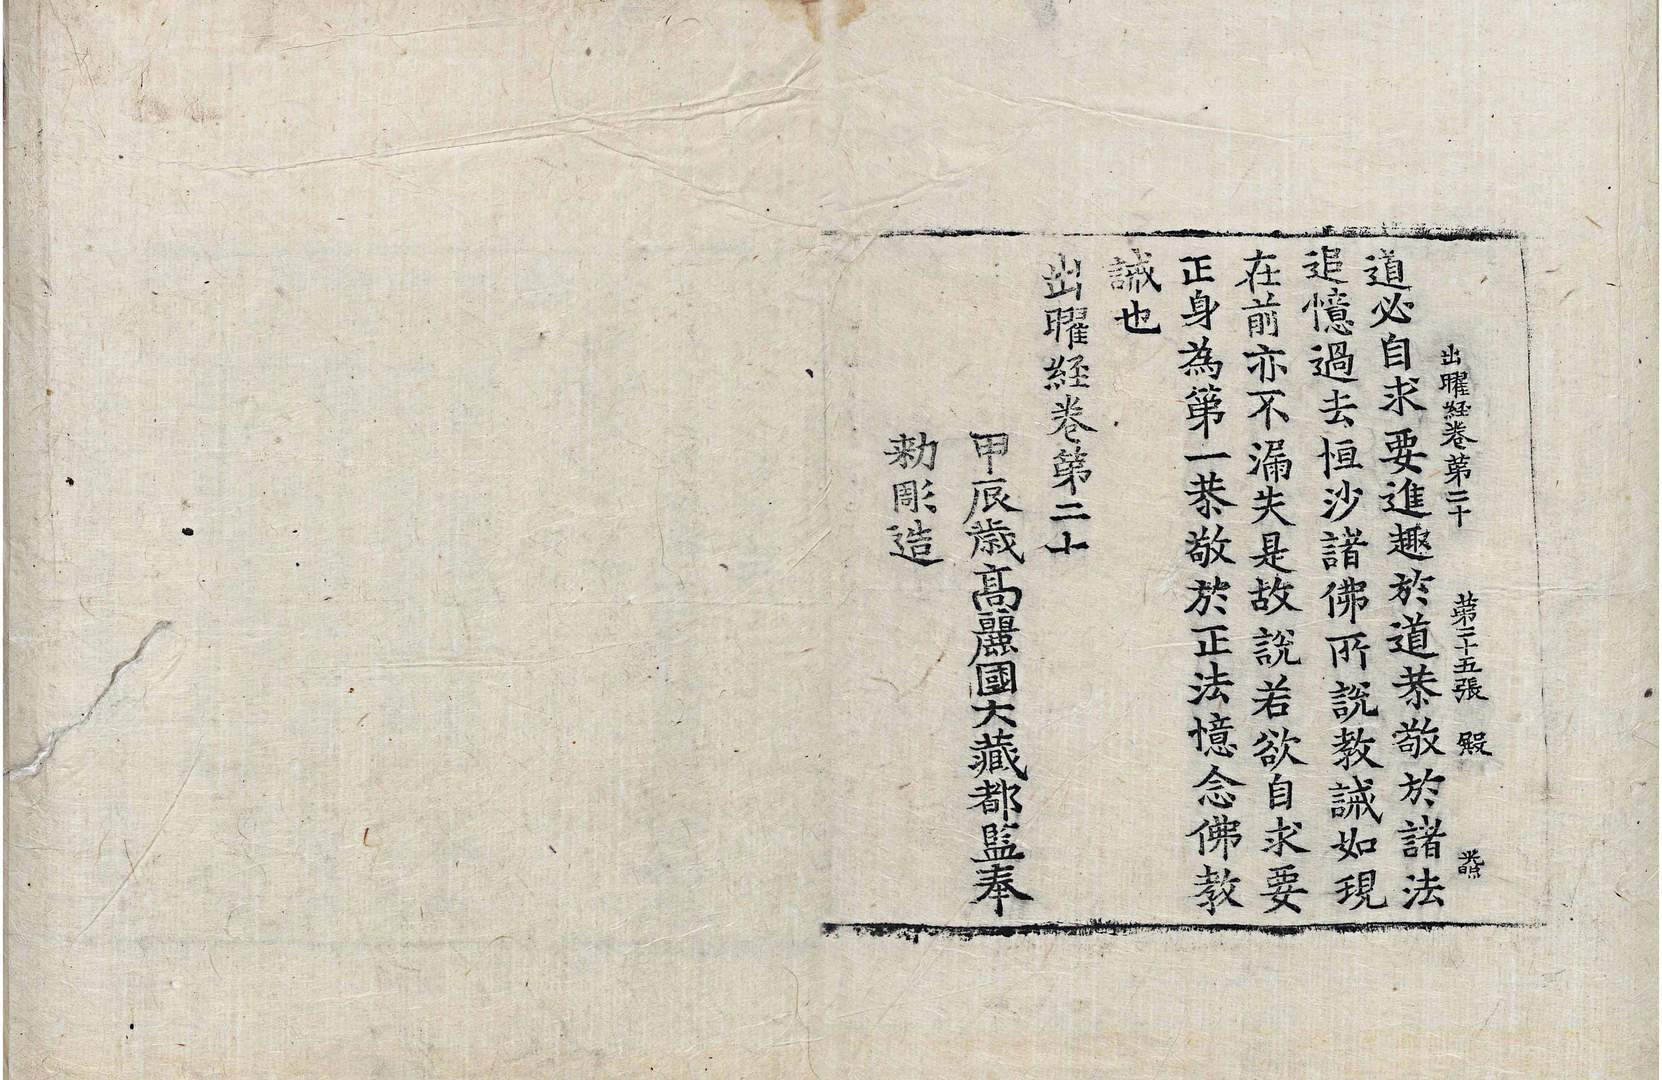 出曜経巻第二十 第二十五張 殿
道必自求要進趣於道恭敬於諸法
追憶過去恒沙諸佛所說教誡如現
在前亦不漏失是故說若欲自求要
正身為第一恭敬於正法憶念佛教
誡也
出曜経巻第二十
甲辰歳高麗國大藏都監奉
勑彫造